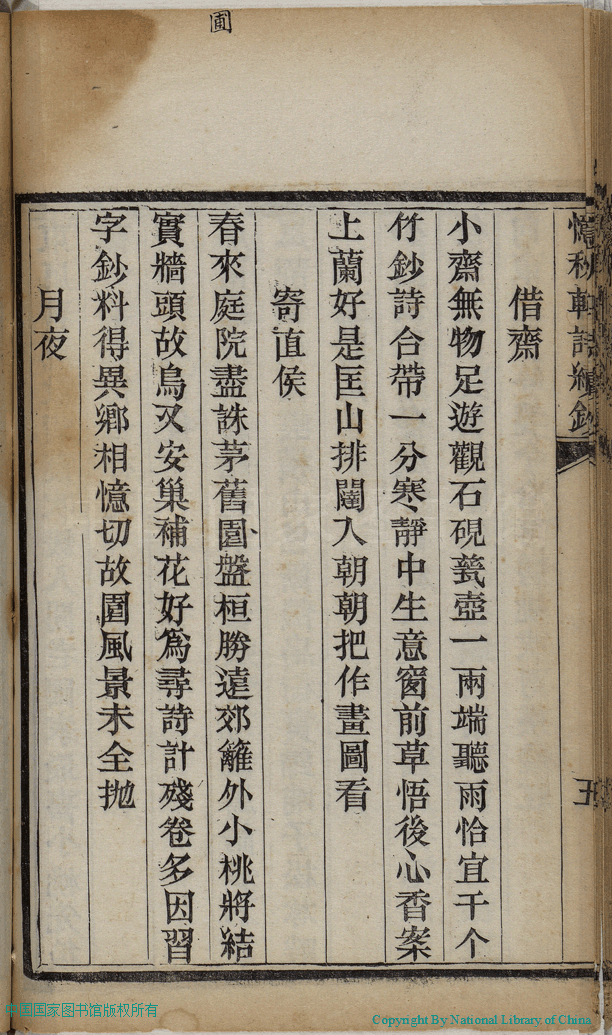 圃
憶秋軒詩續鈔
五
借齋
小齋無物足遊觀石硯甆壺一兩端聽雨恰宜千个
竹鈔詩合帶一分寒靜中生意窗前草悟後心香案
上蘭好是匡山排闥入朝朝把作畫圖看
寄直侯
春來庭院盡誅茅舊圃盤桓勝遠郊籬外小桃將結
實牆頭故烏又安巢補花好爲尋詩計殘卷多因習
字鈔料得異鄉相憶切故園風景未全拋
月夜
中国国家图书馆版权所有
Copyright By National Library of China